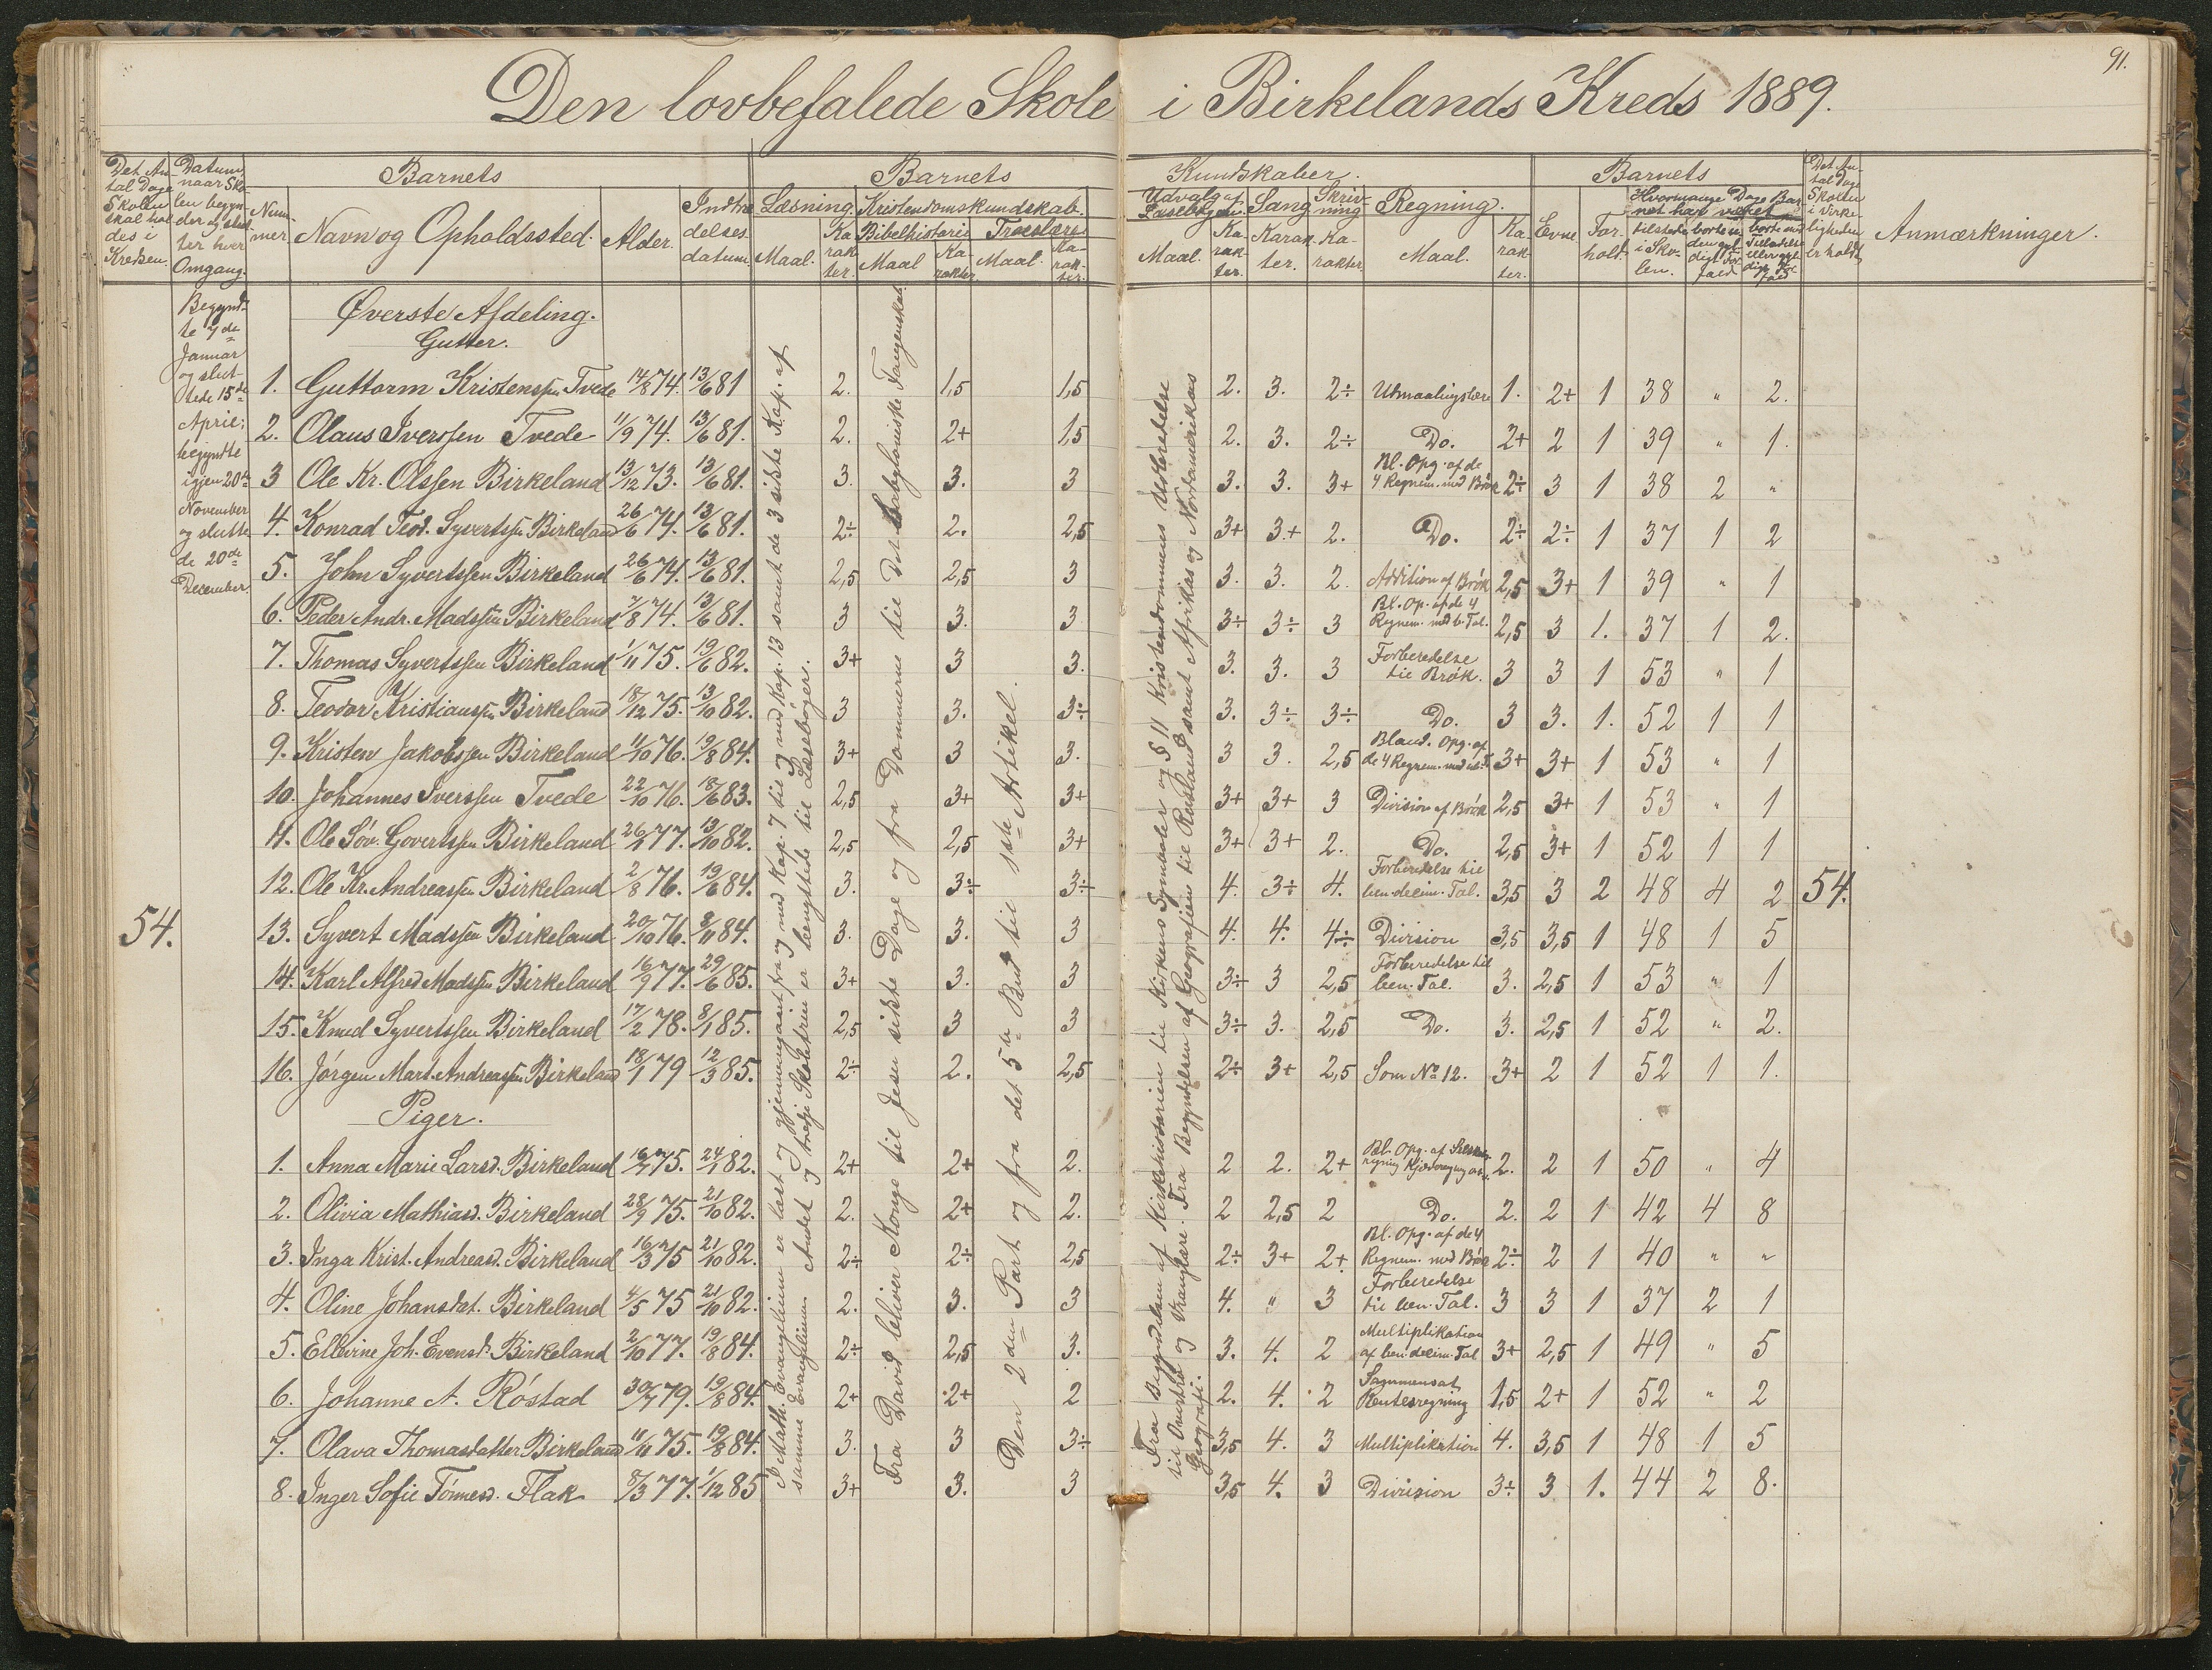 91.
Den lovbefalede Skole i Birkelands Kreds 1889.
Det An-
tal Dage
Skolen
skal hol
des i
Kredsen.
Datum,
naar Sko-
len begyn-
der og slut
ter hver
Omgang.
Barnets
Num-
mer.
Navn og Opholdssted.
Alder.
Indtræ
delses-
datum.
Barnets
Læsning.
Maal.
Ka
rak
ter.
Kristendomskundskab.
Bibelhistorie
Maal
Ka-
rakter.
Troeslære
Maal.
Ka-
rak-
ter.
Kundskaber.
Udvalg af
Læsebogen.
Maal.
Ka-
rak-
ter.
Sang
Karak
ter.
Skriv-
ning
Ka-
rakter.
Regning.
Maal.
Ka
rak
ter.
Barnets
Evne
For-
hold.
Hvormange Dage Bar-
net har været
tilstede
i Sko-
len.
borte u
den gyl-
digt For-
fald
borte med
Tilladelse
eller gyl-
digt For
fald
Det An-
tal Dage
Skolen
i Virke-
ligheden
er holdt.
Anmærkninger.
Begynd-
te 7de
Januar
og slut-
tede 15de
April;
begyndte
igjen 20de
November
og slutte
de 20de
December.
54.
Øverste Afdeling.
Gutter.
1. Guttorm Kristenssen Tvede 14/8 74. 13/6 81 2. 1,5 1,5 2. 3. 2÷ Utmaalingslære 1. 2+ 1 38 " 2.
2. Olaus Iverssen Tvede 11/9 74. 13/6 81. 2. 2+ 1,5 2. 3. 2÷ Do. 2+ 2 1 39 " 1.
3 Ole Kr. Olssen Birkeland 13/12 73. 13/6 81. 3. 3. 3 3. 3. 3+ Bl. Opg. af de 4 Regnem. med Brøk 2÷ 3 1 38 2 "
4. Konrad Teod. Syvertssen Birkeland 26/6 74. 13/6 81. 2÷ 2. 2,5 3+ 3+ 2. Do. 2÷ 2÷ 1 37 1 2
5. John Syvertssen Birkeland 26/6 74. 13/6 81. 2,5 2,5 3 3. 3. 2. Addition af Brøk 2,5 3+ 1 39 " 1
6. Peder Andr. Madssen Birkeland 7/8 74. 13/6 81. 3 3. 3 3÷ 3÷ 3 Bl. Op. af de 4 Regnem. med b. Tal. 2,5 3 1. 37 1 2.
7. Thomas Syvertssen Birkeland 1/11 75. 19/6 82. 3+ 3 3. 3. 3. 3 Forberedelse til Brøk. 3 3 1 53 " 1
8. Teodor Kristianssen Birkeland 18/12 75. 13/10 82. 3 3. 3÷ 3. 3÷ 3÷ Do. 3 3. 1. 52 1 1
9. Kristen Jakobssen Birkeland 11/10 76. 19/8 84. 3+ 3 3. 3 3. 2,5 Bland. Opg. af de 4 Regnem. med ub. T. 3+ 3+ 1 53 " 1
10. Johannes Iverssen Tvede 22/10 76. 18/6 83. 2,5 3+ 3+ 3+ 3+ 3 Division af Brøk 2,5 3+ 1 53 " 1
11. Ole Søv. Govertssen Birkeland 26/1 77. 13/10 82. 2,5 2,5 3+ 3+ 3+ 2. Do. 2,5 3+ 1 52 1 1
12. Ole Kr. Andreassen Birkeland 2/8 76. 19/6 84. 3. 3÷ 3÷ 4. 3÷ 4. Forberedelse til ben. decim. Tal. 3,5 3 2 48 4 2 54.
13. Syvert Madssen Birkeland 20/10 76. 8/11 84. 3. 3. 3 4. 4. 4÷ Division 3,5 3,5 1 48 1 5
14. Karl Alfred Madssen Birkeland 16/9 77. 29/6 85. 3+ 3. 3 3÷ 3 2,5 Forberedelse til ben. Tal. 3. 2,5 1 53 " 1
15. Knud Syvertssen Birkeland 17/2 78. 8/1 85. 2,5 3 3 3÷ 3. 2,5 Do. 3. 2,5 1 52 " 2.
16. Jørgen Mart. Andreassen Birkeland 18/1 79 12/3 85. 2÷ 2. 2,5 2÷ 3+ 2,5 Som No 12. 3+ 2 1 52 1 1.
Piger.
1. Anna Marie Larsd. Birkeland 16/7 75. 24/1 82. 2+ 2+ 2. 2 2. 2+ Bl. Opg. af 2. 2 1 50 " 4
2. Olivia Mathiasd. Birkeland 28/9 75. 21/10 82. 2. 2+ 2. 2 2,5 2 Do. 2. 2 1 42 4 8
3. Inga Krist. Andreasd. Birkeland 16/3 75 21/10 82. 2÷ 2÷ 2,5 2÷ 3+ 2+ Bl. Opg. af de 4 Regnem. med Brøk 2÷ 2 1 40 " "
4. Oline Johansdat. Birkeland 4/5 75 21/10 82. 2. 3. 3 4. " 3 Forberedelse til ben. Tal. 3 3 1 37 2 1
5. Ellevine Joh. Evensd. Birkeland 2/10 77. 19/8 84. 2÷ 2,5 3. 3. 4. 2 Multiplikation af ben. decim. Tal 3+ 2,5 1 49 " 5
6. Johanne A. Röstad 30/7 79. 19/8 84. 2+ 2+ 2 2. 4. 2 Sammensat Rentesregning 1,5 2+ 1 52 " 2
7. Olava Thomasdatter Birkeland 11/6 75. 19/8 84. 3. 3 3÷ 3,5 4. 3 Multiplikation 4. 3,5 1 48 1 5
8. Inger Sofie Tønnesd. Flak 8/3 77. 1/12 85 3+ 3. 3 3,5 4. 3 Division 3÷ 3 1. 44 2 8.
I Math. Evangelium er læst og gjennemgaaet fra og med Kap. 7 til og med Kap. 13 samt de 3 sidste Kap. af
samme Evangelium. Andet og tredje Skoletrin er benyttede til Læsebøger.
Fra David bliver Konge til Jesu sidste Dage og fra Dommerne til Det babyloniske Fangenskab.
Den 2den Part og fra det 5te Bud til 1ste Artikel.
Fra Begyndelsen af Kirkehistorien til Kirkens Symboler og § 11 Kristendommens Udbredelse
til Omvendt og Vranglære. Fra Begyndelsen af Geografien til Rusland samt Afrikas og Nordamerikas
Geografi.